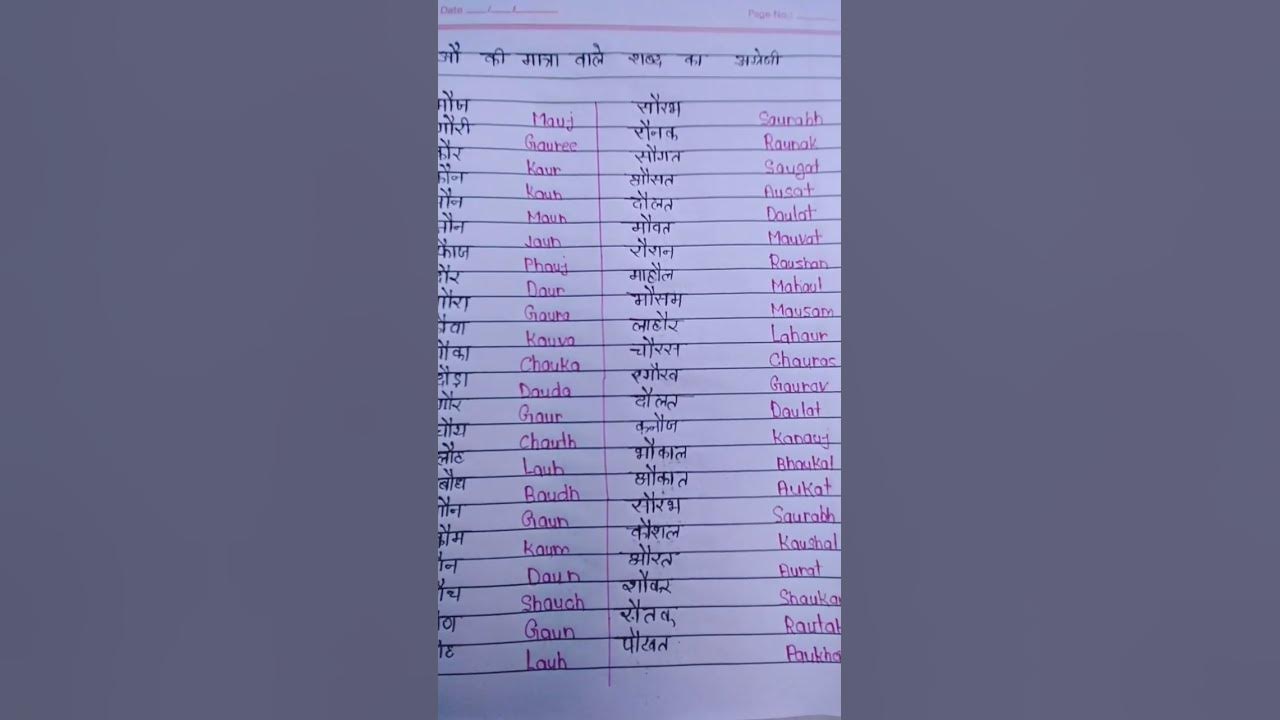 Date / / Page No.:
औ की मात्रा वाले शब्द का अंग्रेजी
मौज Mauj सौरभ Saurabh
गौरी Gauree रौनक Raunak
कौर Kaur सौगत Saugat
कौन Kaun औसत Ausat
मौन Maun दौलत Daulat
जौन Jaun मौवत Mauvat
फौज Phauj रौशन Raushan
दौर Daur माहौल Mahaul
गौरा Gaura मौसम Mausam
कौवा Kauva लाहौर Lahaur
चौका Chauka चौरस Chauras
दौड़ा Dauda गौरव Gaurav
गौर Gaur दौलत Daulat
चौथ Chauth कनौज Kanauj
लौह Lauh भौकाल Bhaukal
बौध Baudh औकात Aukat
गौन Gaun सौरंभ Saurabh
कौम Kaum कौशल Kaushal
दौन Daun औरत Aurat
शौच Shauch शौकर Shauka
गौण Gaun रौतक Rautak
लौह Lauh पौखत Paukha